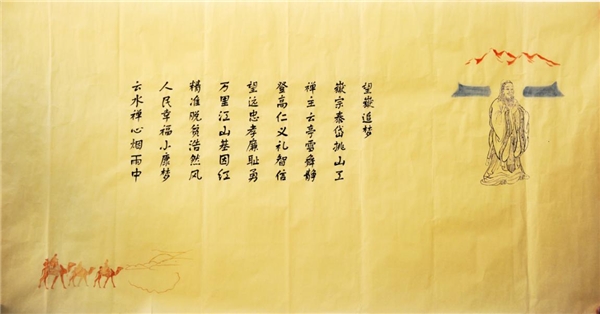 望嶽追梦
嶽宗泰岱挑山工
禅主云亭雪舜静
登高仁义礼智信
望远忠孝廉耻勇
万里江山基因红
精准脱贫浩然风
人民幸福小康梦
云水禅心烟雨中